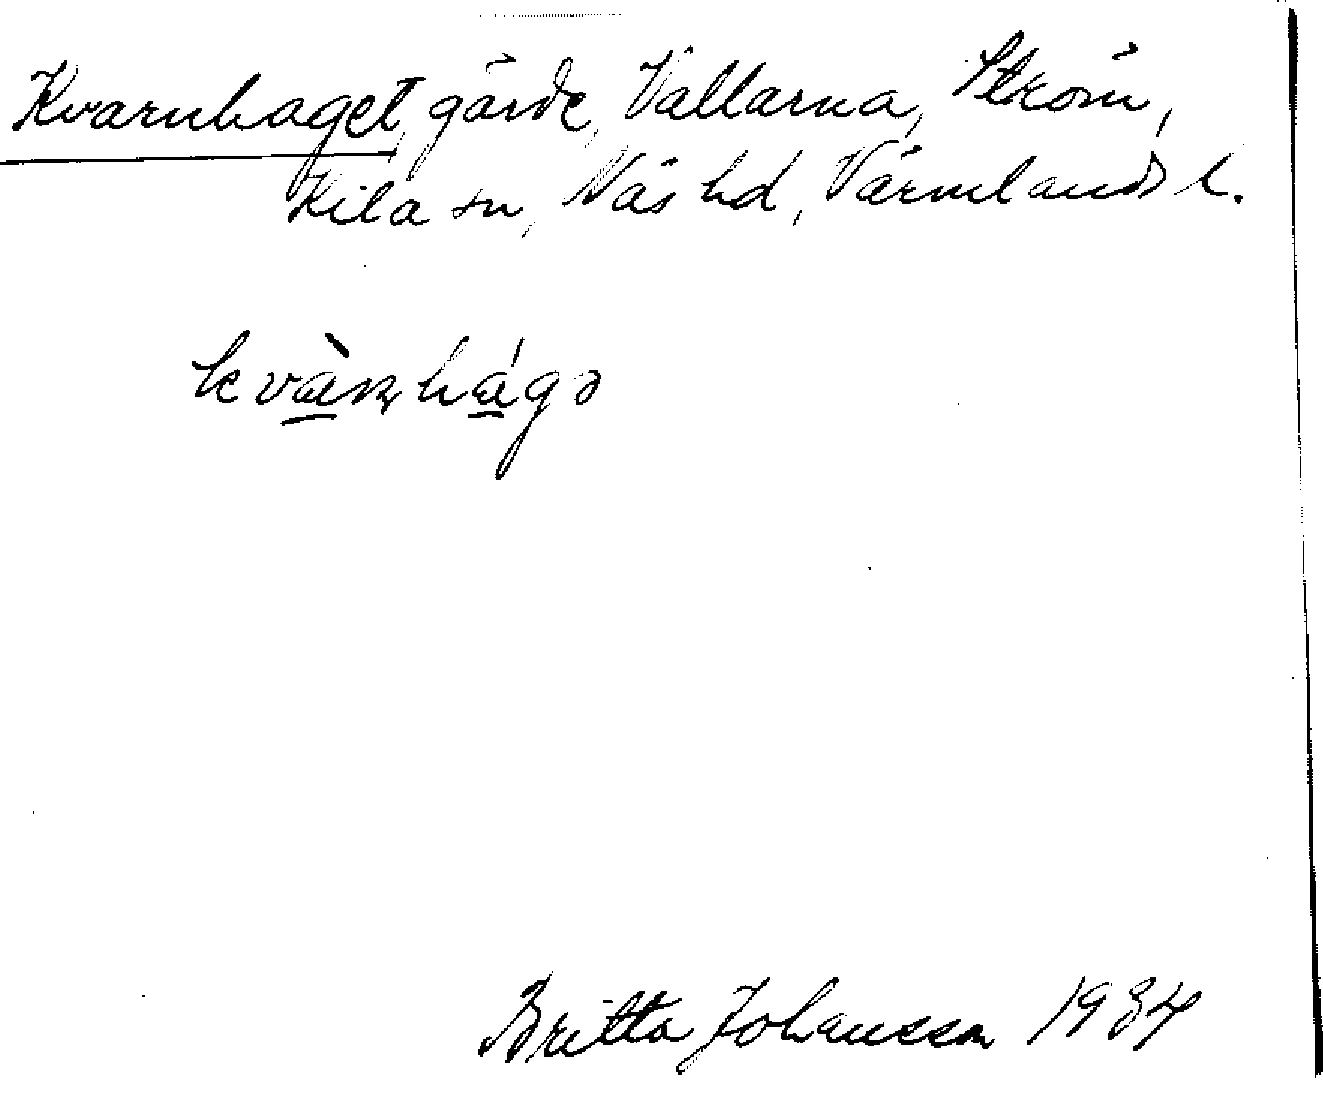 Kvarnhaget, gärde, Vallarna, Ström,
Kila sn, Näs hd, Värmlands l.
kvàɳhágə
Britta Johansson 1934